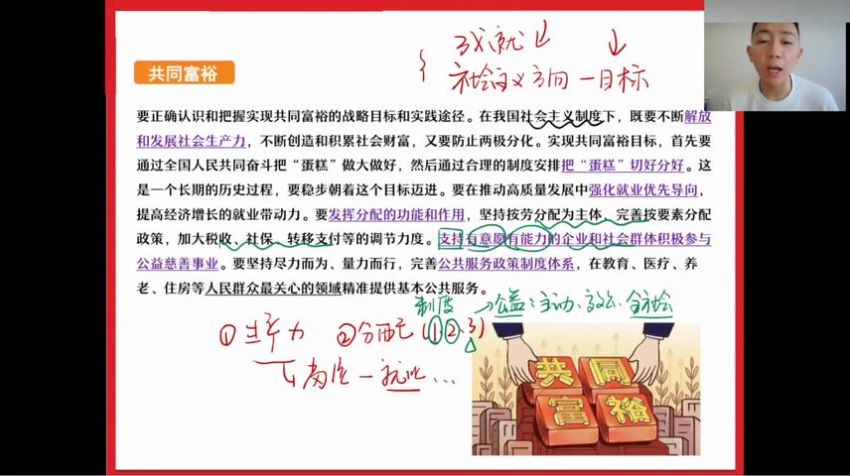 成就↓ ↓
社会主义方向 一目标
共同富裕
要正确认识和把握实现共同富裕的战略目标和实践途径。在我国社会主义制度下，既要不断解放
和发展社会生产力，不断创造和积累社会财富，又要防止两极分化。实现共同富裕目标，首先要
通过全国人民共同奋斗把“蛋糕”做大做好，然后通过合理的制度安排把“蛋糕”切好分好。这
是一个长期的历史过程，要稳步朝着这个目标迈进。要在推动高质量发展中强化就业优先导向，
提高经济增长的就业带动力。要发挥分配的功能和作用，坚持按劳分配为主体，完善按要素分配
政策，加大税收、社保、转移支付等的调节力度。支持有意愿有能力的企业和社会群体积极参与
公益慈善事业。要坚持尽力而为、量力而行，完善公共服务政策制度体系，在教育、医疗、养
老、住房等人民群众最关心的领域精准提供基本公共服务。
制度 →公益：主动、 全社会
①生产力 ②分配（1 2、3）
高质一就业…
共同
富裕